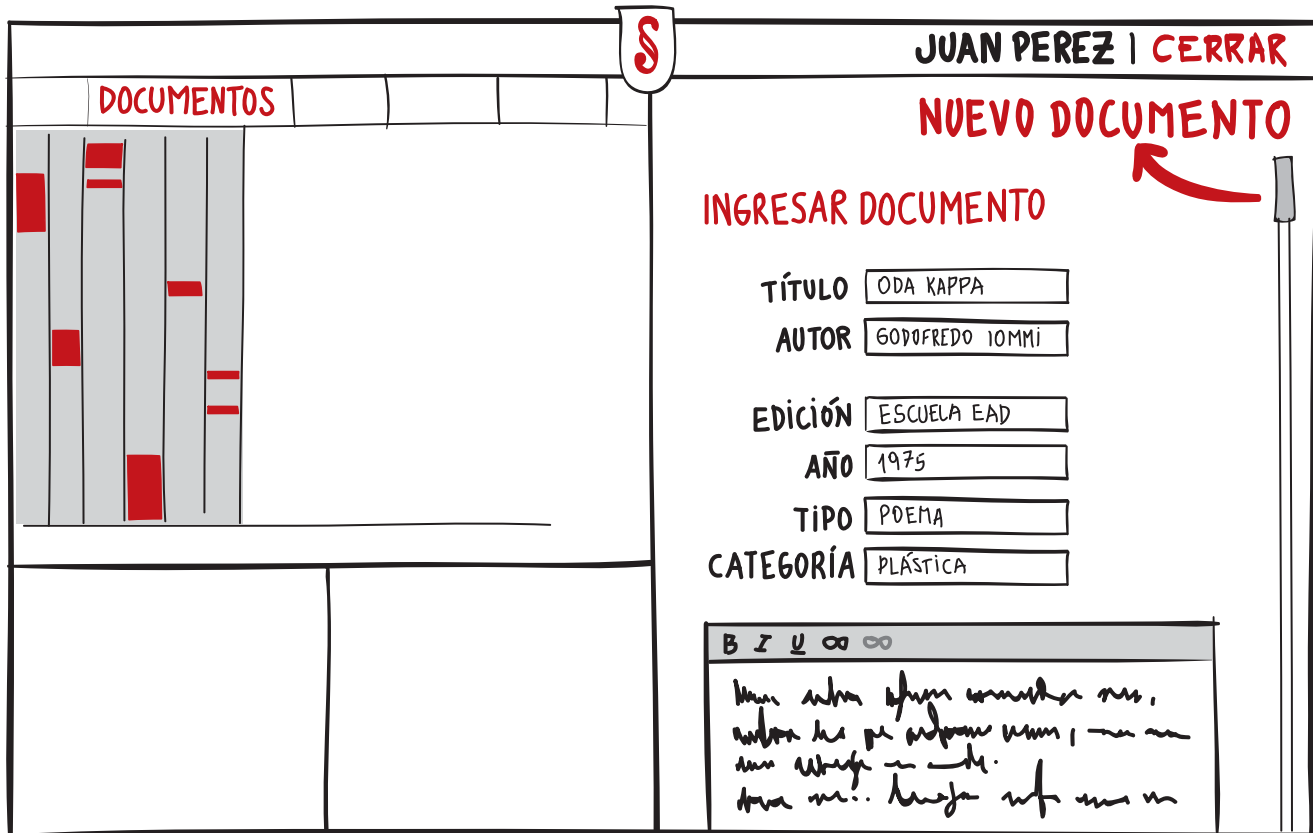 §
JUAN PEREZ | CERRAR
DOCUMENTOS
NUEVO DOCUMENTO
INGRESAR DOCUMENTO
TÍTULO ODA KAPPA
AUTOR GODOFREDO IOMMI
EDICIÓN ESCUELA EAD
AÑO 1975
TIPO POEMA
CATEGORÍA PLÁSTICA
B I U